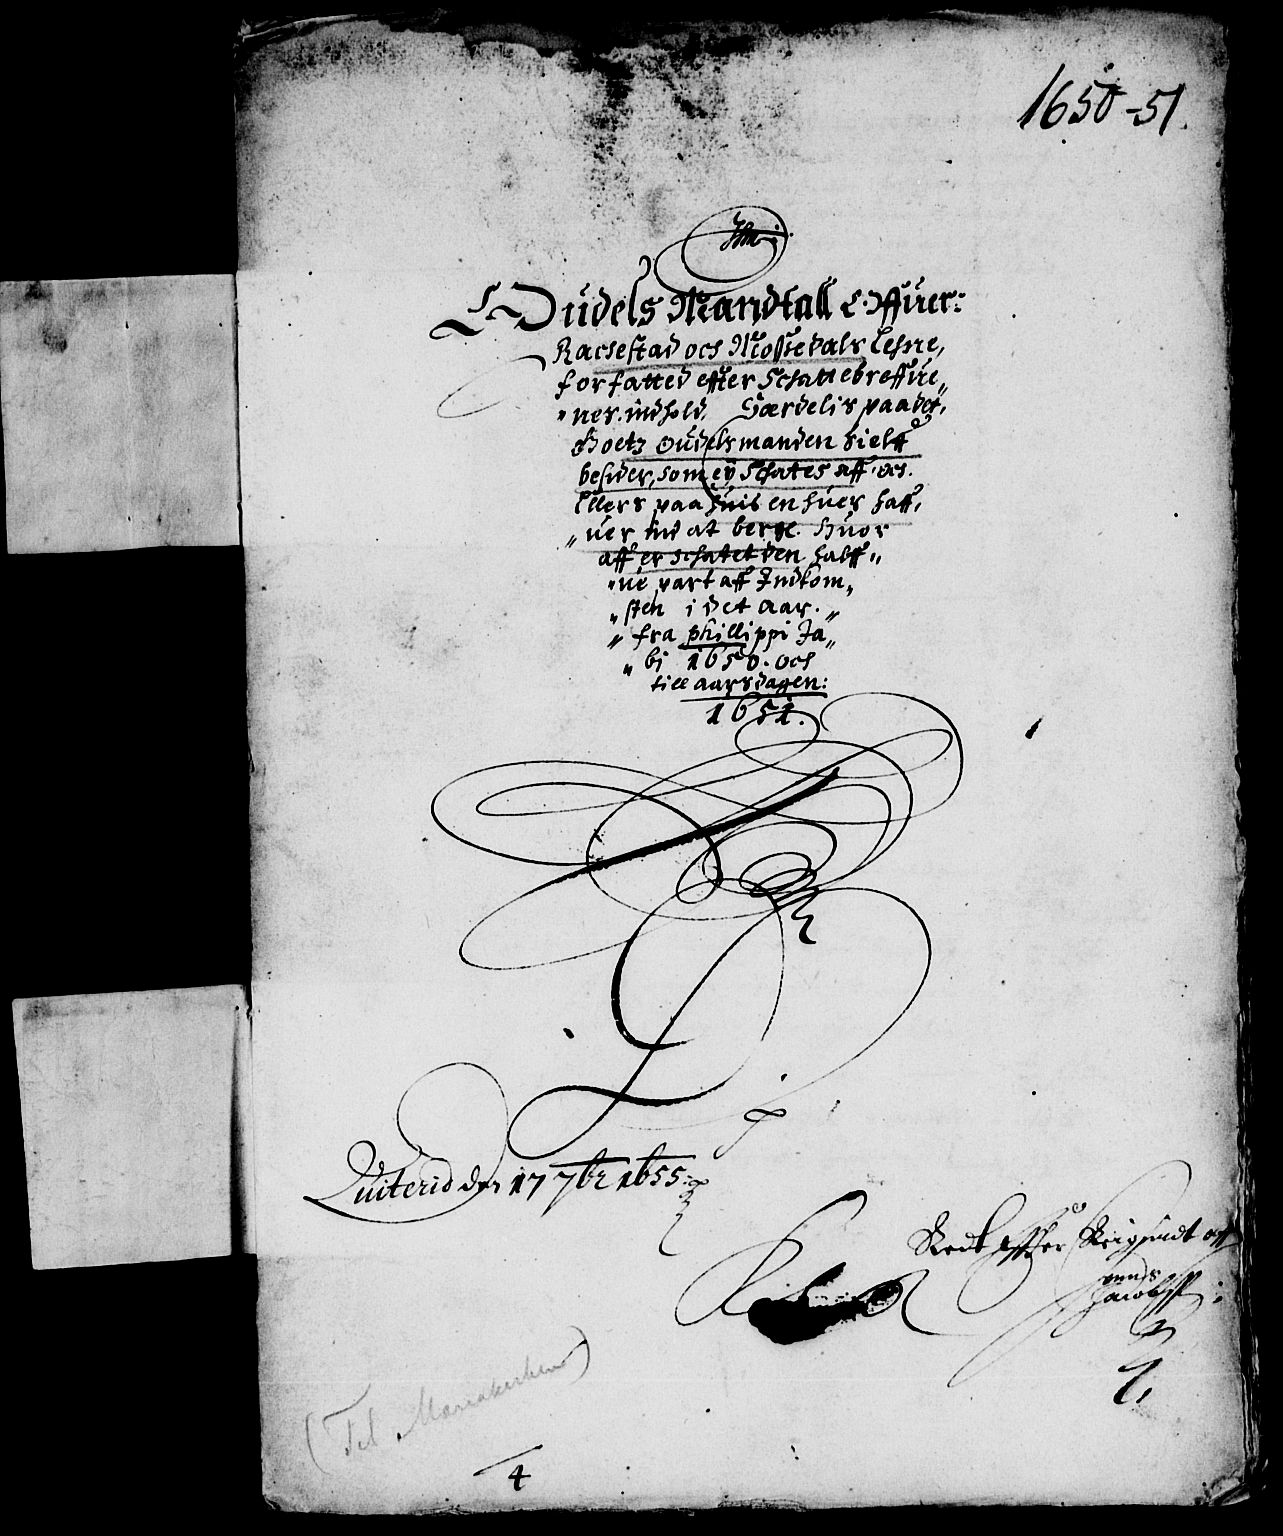 1650-51.
Oudels Mandtall Offuer:
Rachestad och Mossedals Lehne,
forfatted effter Schattebreffue„
„nes indhold, Særdelis paa det,
Goetz oudelsmanden sielff
besider, som ey Schates aff, och
Ellers paa huis en huer haff„
„uer ind at berge. Huor
aff er schatet den halff„
„ue part aff Indkom„
„sten i det aar. „
„ fra phillippi Ja„
„bi 1650. och
till aarsdagen:
1651.
Quiterid den 17 7br 1655
Rect effter
Jacobss
(Til Mariakirken)
4